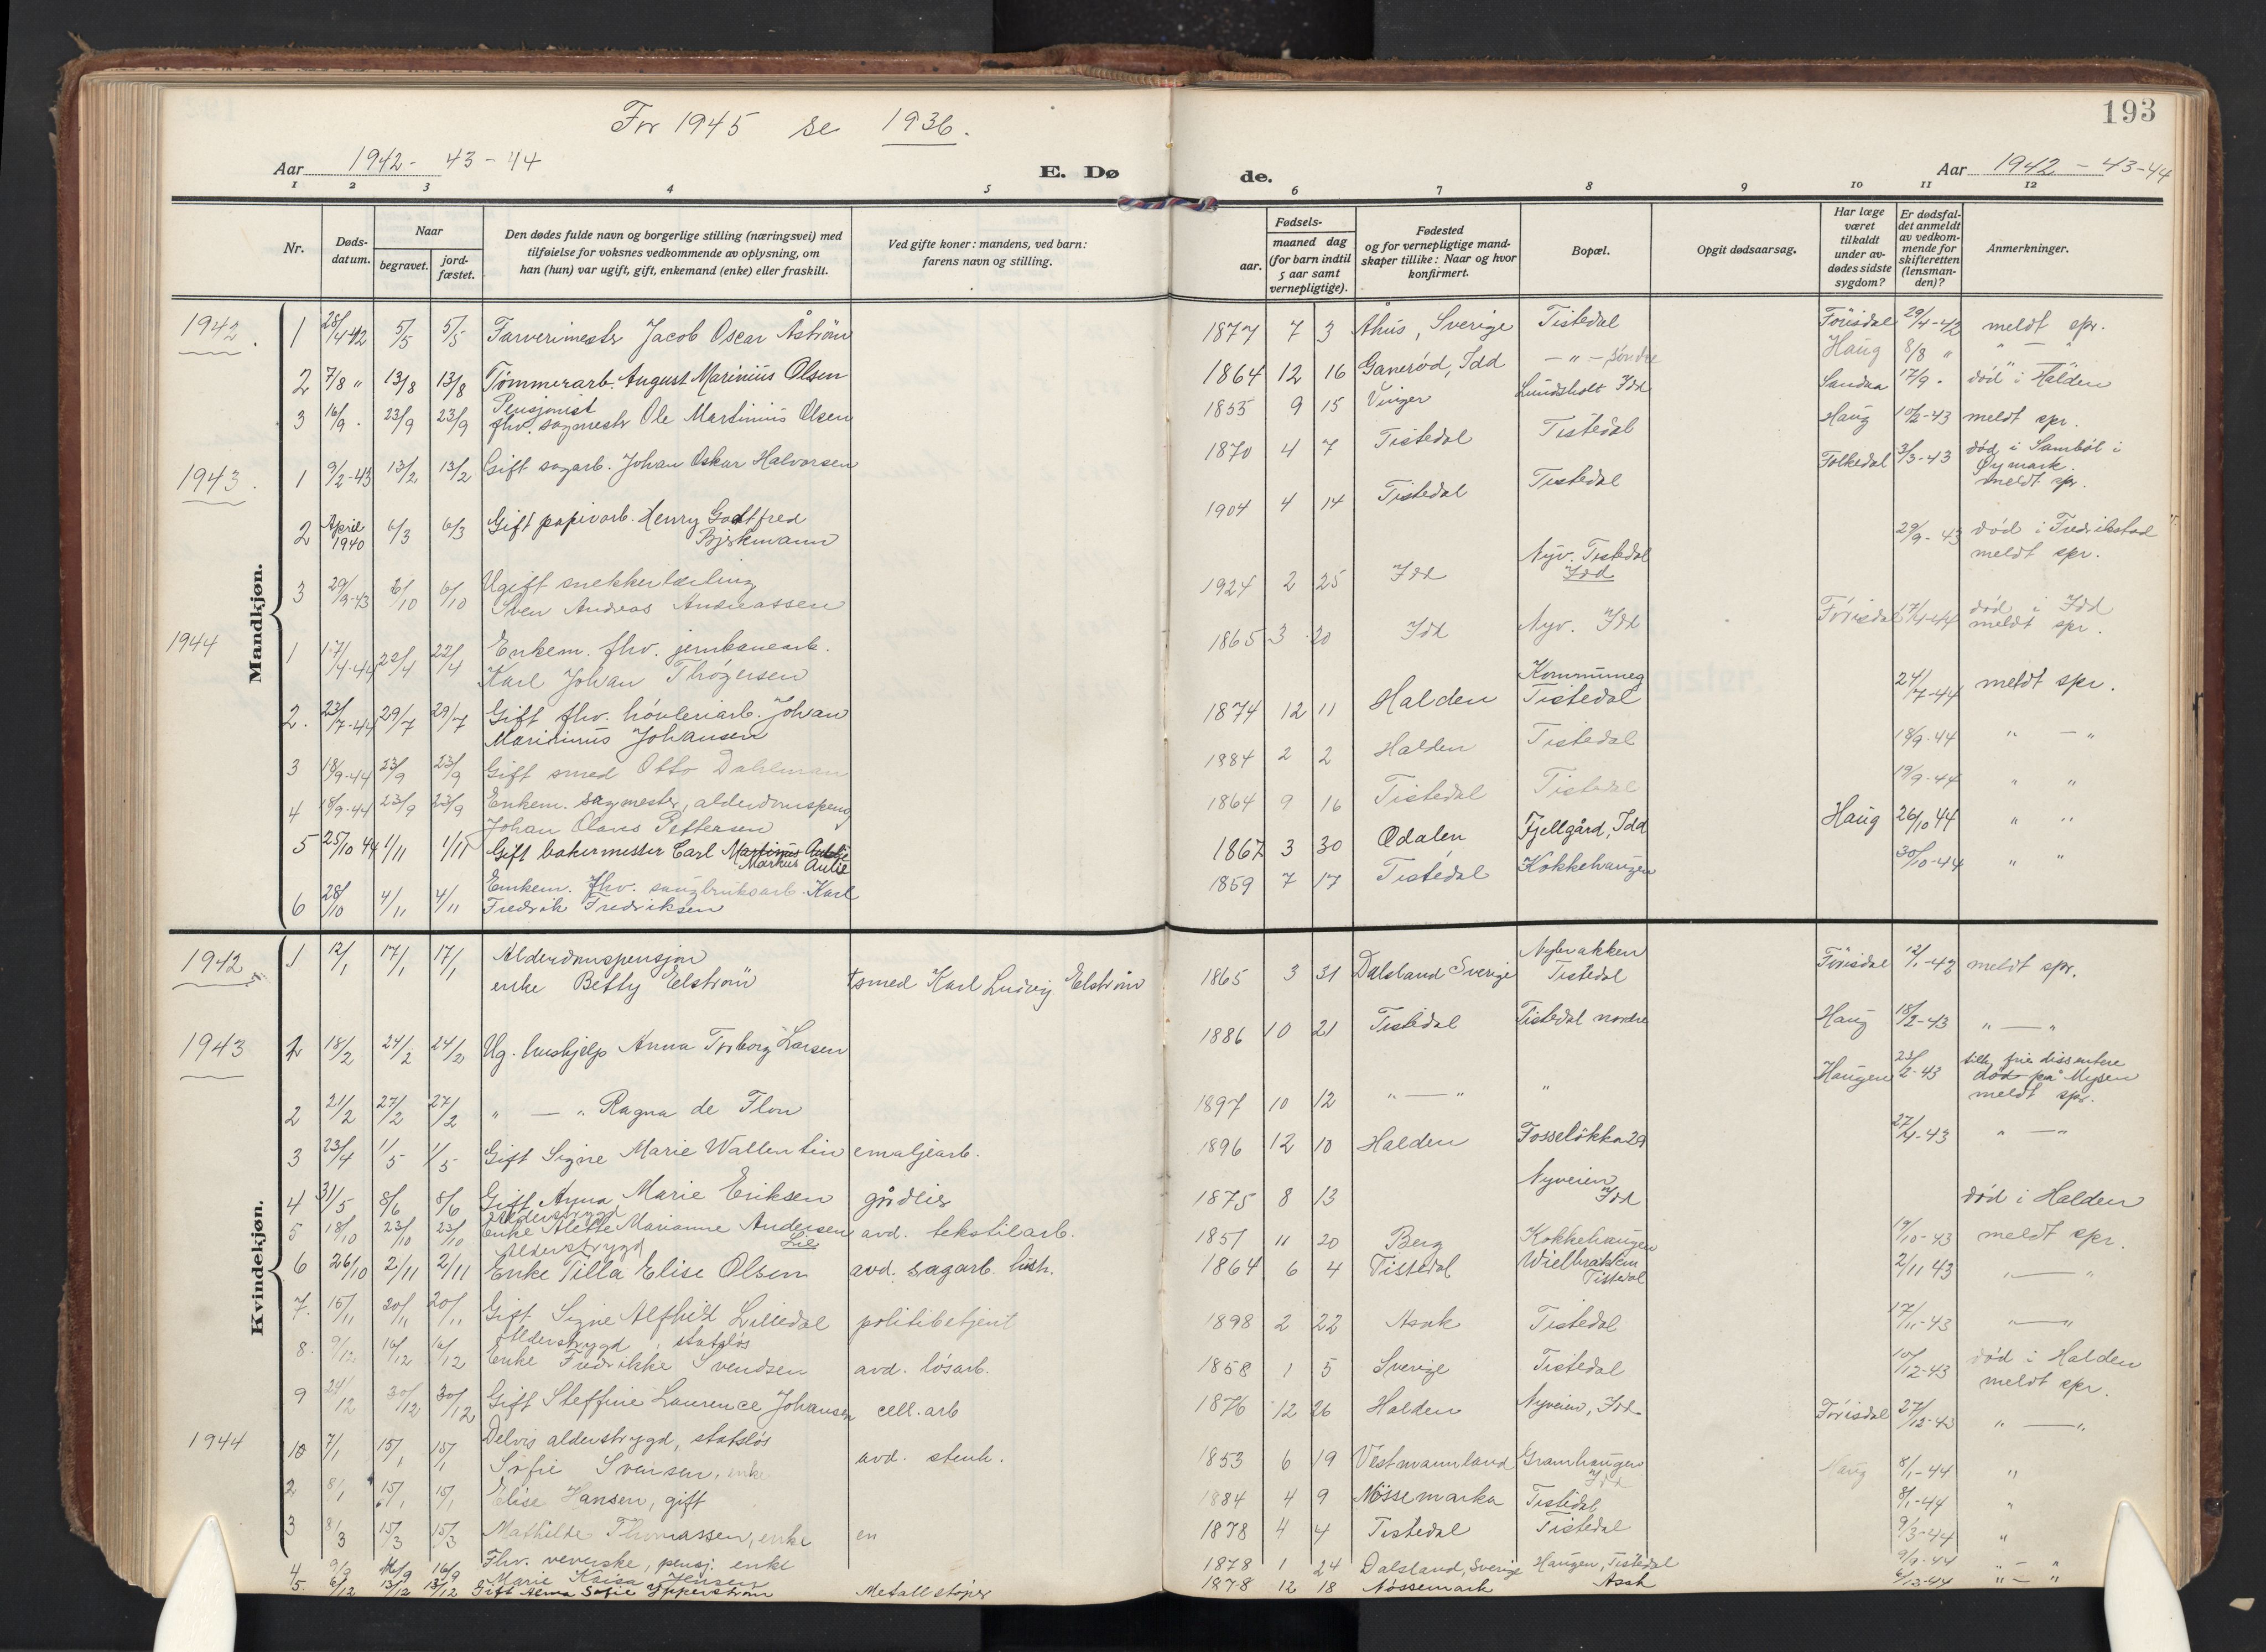 193
For 1945 se 1936.
Aar 1942 - 43 - 44
E. Dø
de.
Aar 1942 - 43 - 44
1 2 3 4 5 6 7 8 9 10 11 12
Nr.
Døds-
datum.
Naar
begravet.
jord-
fæstet.
Den dødes fulde navn og borgerlige stilling (næringsvei) med
tilføielse for voksnes vedkommende av oplysning, om
han (hun) var ugift, gift, enkemand (enke) eller fraskilt.
Ved gifte koner: mandens, ved barn:
farens navn og stilling.
Fødsels-
aar.
maaned dag
(for barn indtil
5 aar samt
vernepligtige).
Fødested
og for vernepligtige mand-
skaper tillike: Naar og hvor
konfirmert.
Bopæl.
Opgit dødsaarsag.
Har læge
været
tilkaldt
under av-
dødes sidste
sygdom?
Er dødsfal-
det anmeldt
av vedkom-
mende for
skifteretten
(lensman-
den)?
Anmerkninger.
Mandkjøn.
1942.
1 28/4-42 5/5 5/5 Farverimester Jacob Oscar Åström 1877 7 3 Åhus, Sverige Tistedal Förisdal 29/4-42 meldt spr.
2 7/8 " 13/8 13/8 Tømmerarb. August Marinius Olsen 1864 12 16 Ganerød, Idd - " - søndre Haug 8/8 " " - "
3 16/9 . 23/9 23/9 Pensjonist
fhv. sagmestr Ole Martinius Olsen 1855 9 15 Vinger Lundsholt Idd Sandaa 17/9 . død i Halden
1943.
1 9/2-43 13/2 13/2 Gift sagarb. Johan Oskar Halvorsen 1870 4 7 Tistedal Tistedal Haug 10/2-43 meldt spr.
2 April 1940 6/3 6/3 Gift papirarb. Henry Godtfred
Bjørkmann 1904 4 14 Tistedal Tistedal Folkedal 3/3-43 død i Sambøl i
Øymark.
meldt spr.
3 29/9-43 6/10 6/10 Ugift snekkerlærling
Sven Andreas Andreassen 1924 2 25 Idd Nyv. Tistedal
Idd 29/9-43 død i Fredrikstad
meldt spr.
1944
1 17/4-44 22/4 22/4 Enkem. fhv. jernbanearb.
Karl Johan Thrøgersen 1865 3 20 Idd Nyv. Idd Førisdal 17/4-44 død i Idd
meldt spr.
2. 23/7-44 29/7 29/7 Gift fhv. høvleriarb. Johan
Marinius Johansen 1874 12 11 Halden Kommuneg
Tistedal 24/7-44 meldt spr.
3 18/9-44 23/9 23/9 Gift smed Otto Dahlman 1884 2 2 Halden Tistedal 18/9-44 " - "
4 18/9-44 23/9 23/9 Enkem. sagmester, alderdomspens
Johan Olaves Pettersen 1864 9 16 Tistedal Tistedal 19/9-44 " "
5 25/10 44 1/11 1/11 Gift bakermester Carl Martinus Aulie
Markus Aulie 1867 3 30 Odalen Fjellgård, Idd Haug 26/10 44 " "
6 28/10 4/11 4/11 Enkem. fhv. saugbruksarb. Karl
Fredrik Fredriksen 1859 7 17 Tistedal Kokkehaugen 30/10-44 " "
Kvindekjøn.
1942
1 12/1 17/1 17/1 Alderdomspensjon
enke Betty Elström smed Karl Ludvig Elström 1865 3 31 Dalsland Sverige Nybrakken
Tistedal Förisdal 12/1-42 meldt spr.
1943
1 18/2 24/2 24/2 Ug. hushjelp Anna Torborg Larsen 1886 10 21 Tistedal Tistedal nordre Haug 18/2-43 " - "
2 21/2 27/2 27/2 " - " Ragna de Flon 1897 10 12 " - " " Haugen 23/2-43 tilh. frie dissentere
død på Mysen
meldt spr.
3 23/4 1/5 1/5 Gift Signe Marie Wallentin emaljearb. 1896 12 10 Halden Fosseløkka 29 27/4-43 " - "
4 31/5 8/6 8/6 Gift Anna Marie Eriksen gårdeier 1875 8 13 Nyveien
Idd død i Halden
5 18/10 23/10 23/10 Alderstrygd
Enke Alette Marianne Andersen Lie avd. tekstilarb. 1851 11 20 Berg Kokkehaugen 19/10-43 meldt spr.
6 26/10 2/11 2/11 Alderstrygd
Enke Tilla Elise Olsen avd. sagarb. 1864 6 4 Tistedal Wielbrakken
Tistedal 2/11 43 " - "
7. 15/11 20/11 20/11 Gift Signe Alfhild Lilledal politibetjent 1898 2 22 Asak Tistedal 17/11-43 " - "
8. 9/12 16/12 16/12 Alderstrygd, statsløs
Enke Fredrikke Svendsen avd. løsarb. 1858 1 5 Sverige Tistedal 10/12-43 død i Halden
meldt spr.
9 24/12 30/12 30/12 Gift Steffine Laurence Johansen cell. arb 1876 12 26 Halden Nyveien, Idd. Førisdal 27/12-43 " - "
1944
10 7/1 15/1 15/1 Delvis alderstrygd, statsløs
Sofie Svensen, enke avd. stenh. 1853 6 19 Vestmannland Gramhaugen
Idd Haug 8/1-44 "
2 8/1 15/1 15/1 Elise Hansen, gift 1884 4 9 Nössemarka Tistedal 8/1-44 "
3 8/3 15/3 15/3 Mathilde Thomassen, enke en 1878 4 4 Tistedal Tistedal 9/3-44 "
4. 9/9 16/9 16/9 Fhv. veverske, pensj. enke
Marie Kaisa Jensen 1878 1 24 Dalsland, Sverige Haugen, Tistedal 9/9-44 " - "
5. 6/12 13/12 13/12 Gift Alma Sofie Ypperström Metallstøper 1878 12 18 Nössemark Asak 6/12-44 " - "